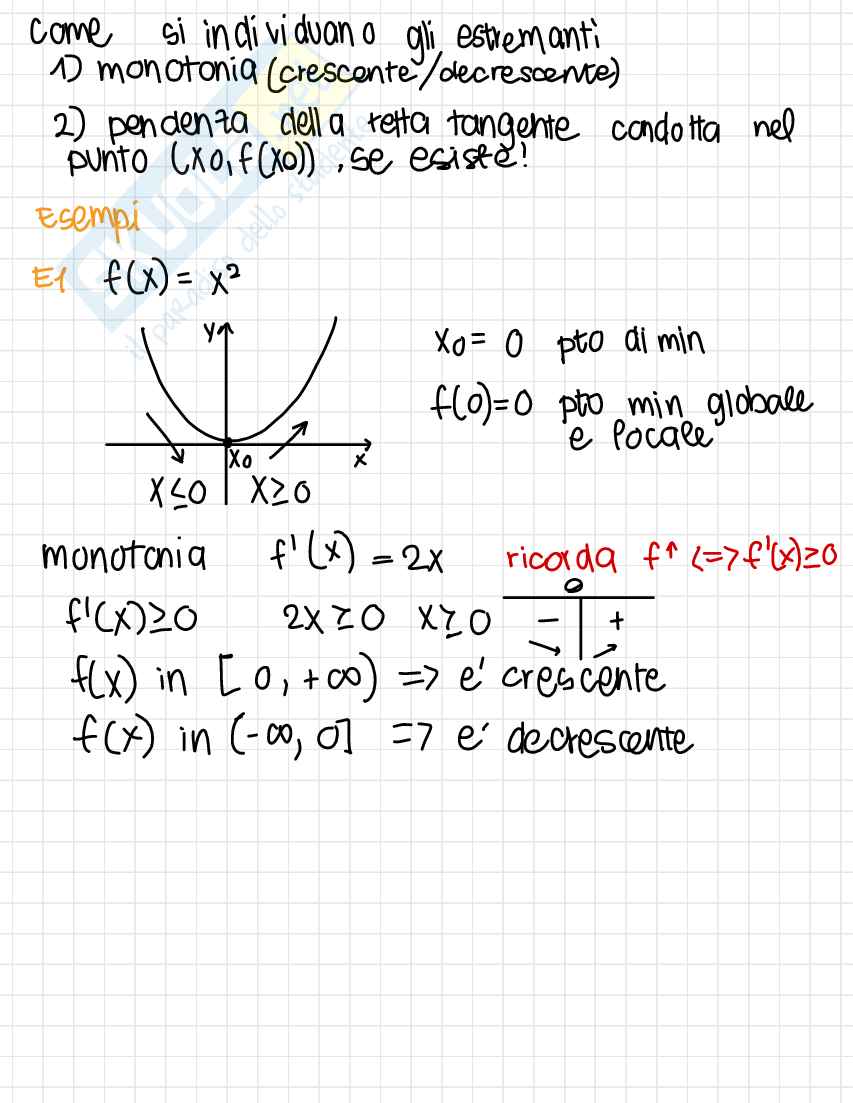 Come si individuano gli estremanti
1) monotonia (crescente/decrescente)
2) pendenza della retta tangente condotta nel
punto (x0, f(x0)), se esiste!
Esempi
E1 f(x) = x²
y
x0 = 0 pto di min
f(0)=0 pto min globale
e locale
x0
x
x≤0 x≥0
monotonia f'(x) = 2x ricorda f↑ <=> f'(x)≥0
0
f'(x)≥0 2x≥0 x≥0 − +
f(x) in [0, +∞) => e' crescente
f(x) in (-∞, 0] => e' decrescente
SKUOLA.net
il paradiso dello studente